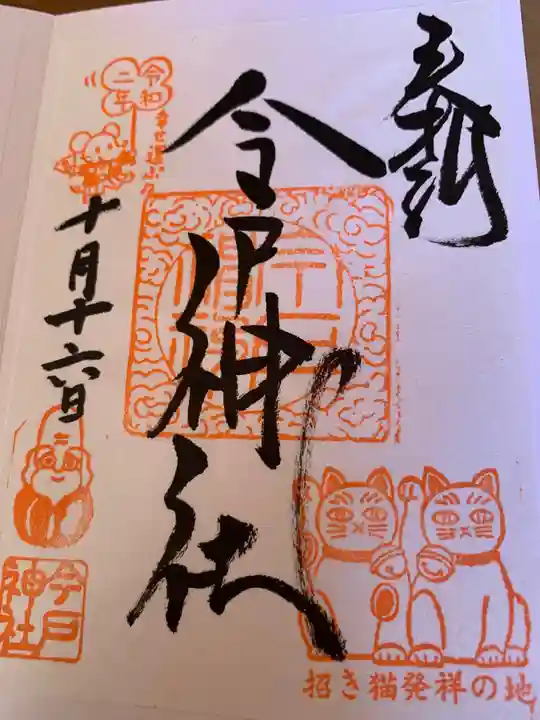 奉拝
今戸神社
令和
二年
幸せ運ぶ
十月十六日
今戸
神社
招き猫発祥の地